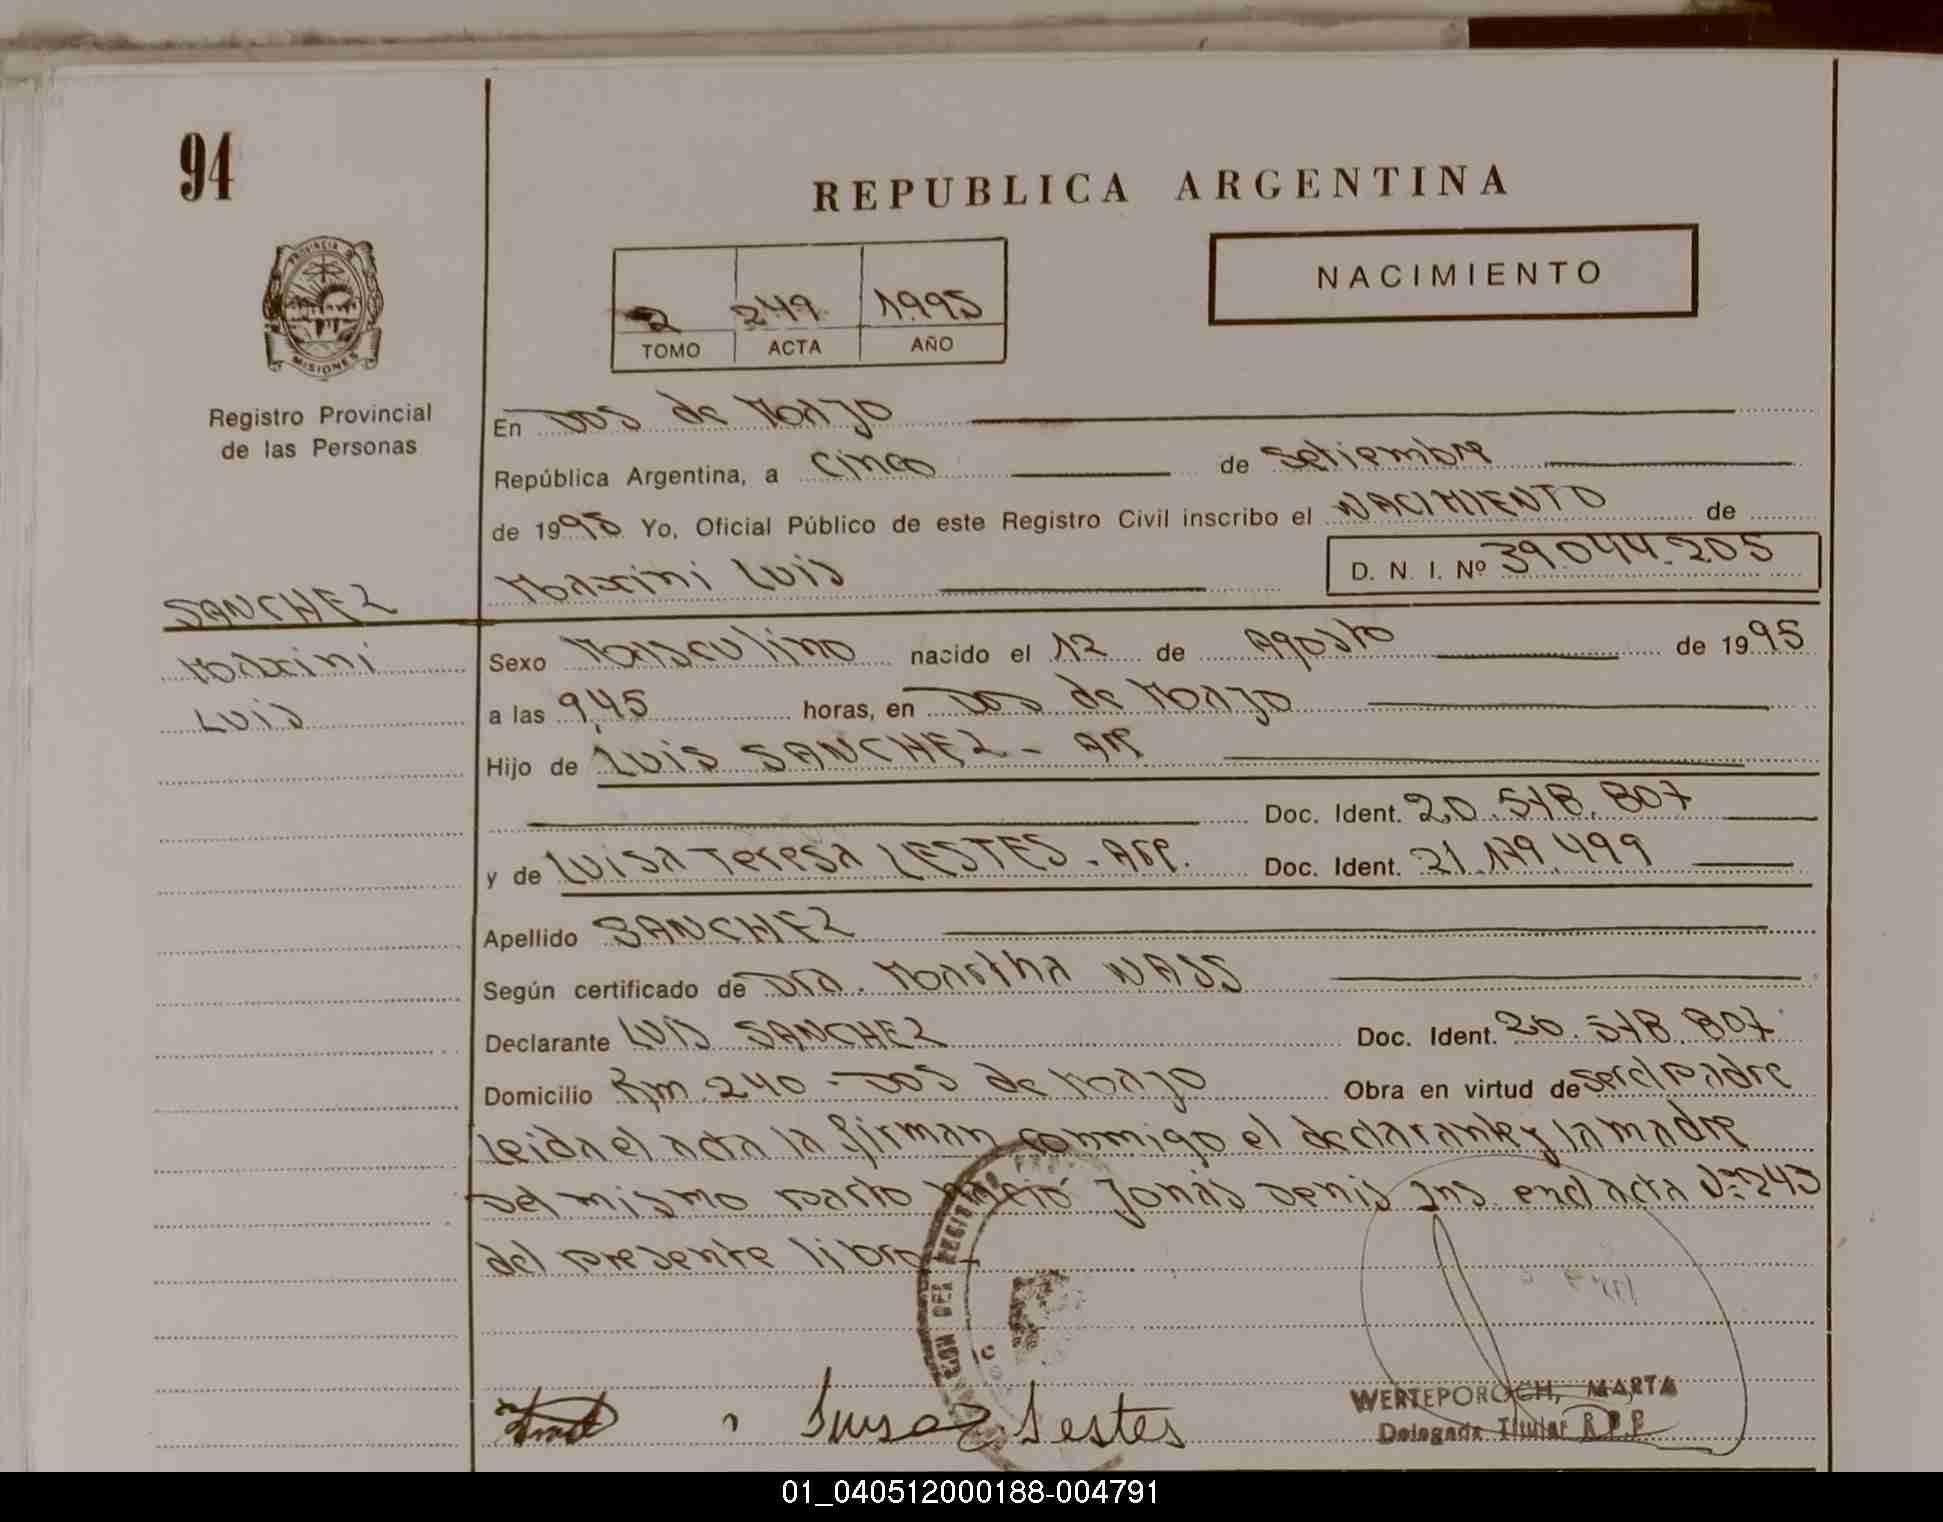 94
REPUBLICA ARGENTINA
PROVINCIA D
MISIONES
2 249 1995
TOMO ACTA AÑO
NACIMIENTO
Registro Provincial
de las Personas
En Dos de Mayo
República Argentina, a cinco de Setiembre
de 1995 Yo, Oficial Público de este Registro Civil inscribo el NACIMIENTO de
Luis D. N. I. Nº 39.044.205
SANCHEZ
Luis
Sexo Masculino nacido el 12 de Agosto de 1995
a las 9,45 horas, en Dos de Mayo
Hijo de Luis SANCHEZ - Arg
Doc. Ident. 20.518.807
y de Luisa Teresa LESTES - Arg. Doc. Ident. 21.179.499
Apellido SANCHEZ
Según certificado de Dra. Martha NASS
Declarante Luis SANCHEZ Doc. Ident. 20.518.807
Domicilio Km 240 - Dos de Mayo Obra en virtud de ser el padre
Leida el acta la firman conmigo el declarante y la madre
Del mismo parto nació Jonás Denis Ins. en el acta Nº 243
del presente libro
Luisa Lestes
WERTEPOROCH, MARTA
Delegada Titular R.P.P.
01_040512000188-004791